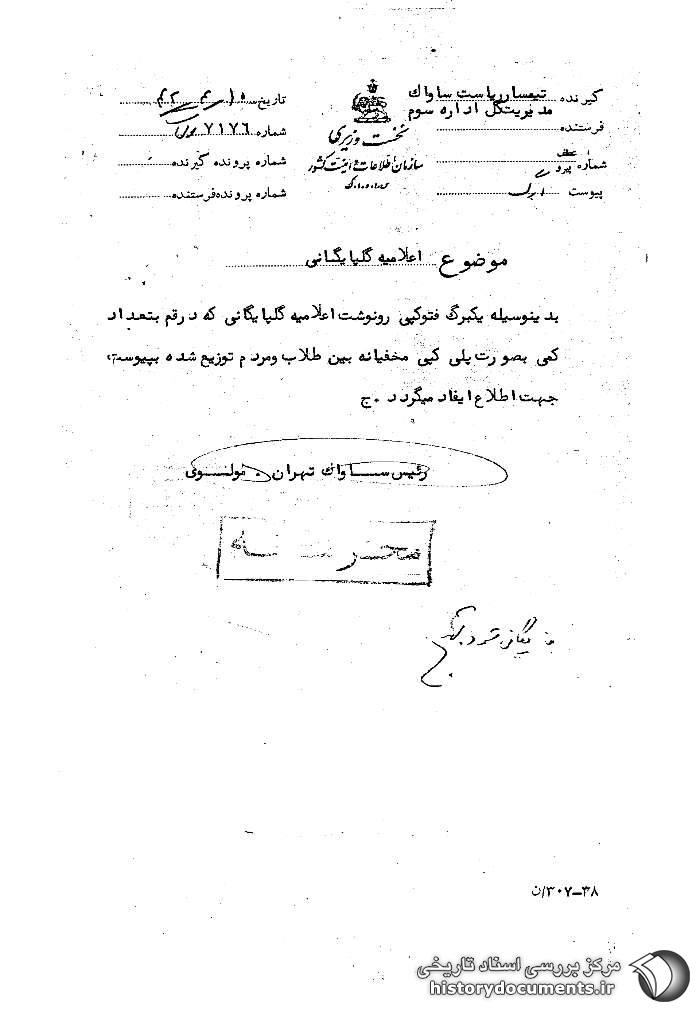 گیرنده تیمسار ریاست ساواک
مدیریت کل اداره سوم
فرستنده
شماره پیرو
پیوست
نخست وزیری
سازمان اطلاعات و امنیت کشور
س.ا.و.ا.ک
تاریخ
شماره ۷۱۷۶
شماره پرونده گیرنده
شماره پرونده فرستنده
موضوع اعلامیه گلپایگانی
بدینوسیله یکبرگ فتوکپی رونوشت اعلامیه گلپایگانی که در قم بتعداد
کمی بصورت پلی کپی مخفیانه بین طلاب و مردم توزیع شده بپیوست
جهت اطلاع ایفاد میگردد . ج
رئیس ساواک تهران . مولوی
محرمانه
بایگانی شود
۳۰۷-۳۸/ن
مرکز بررسی اسناد تاریخی
historydocuments.ir